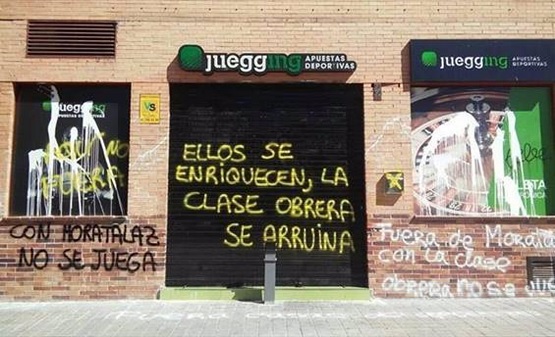 juegging APUESTAS
DEPORTIVAS
juegging APUESTAS
DEPORTIVAS
juegging
APUESTAS DEPORTIVAS
AQUÍ NO
FUERA
CON HORATALAZ
NO SE JUEGA
ELLOS SE
ENRIQUECEN, LA
CLASE OBRERA
SE ARRUINA
Fuera de
con la clase
obrera no se